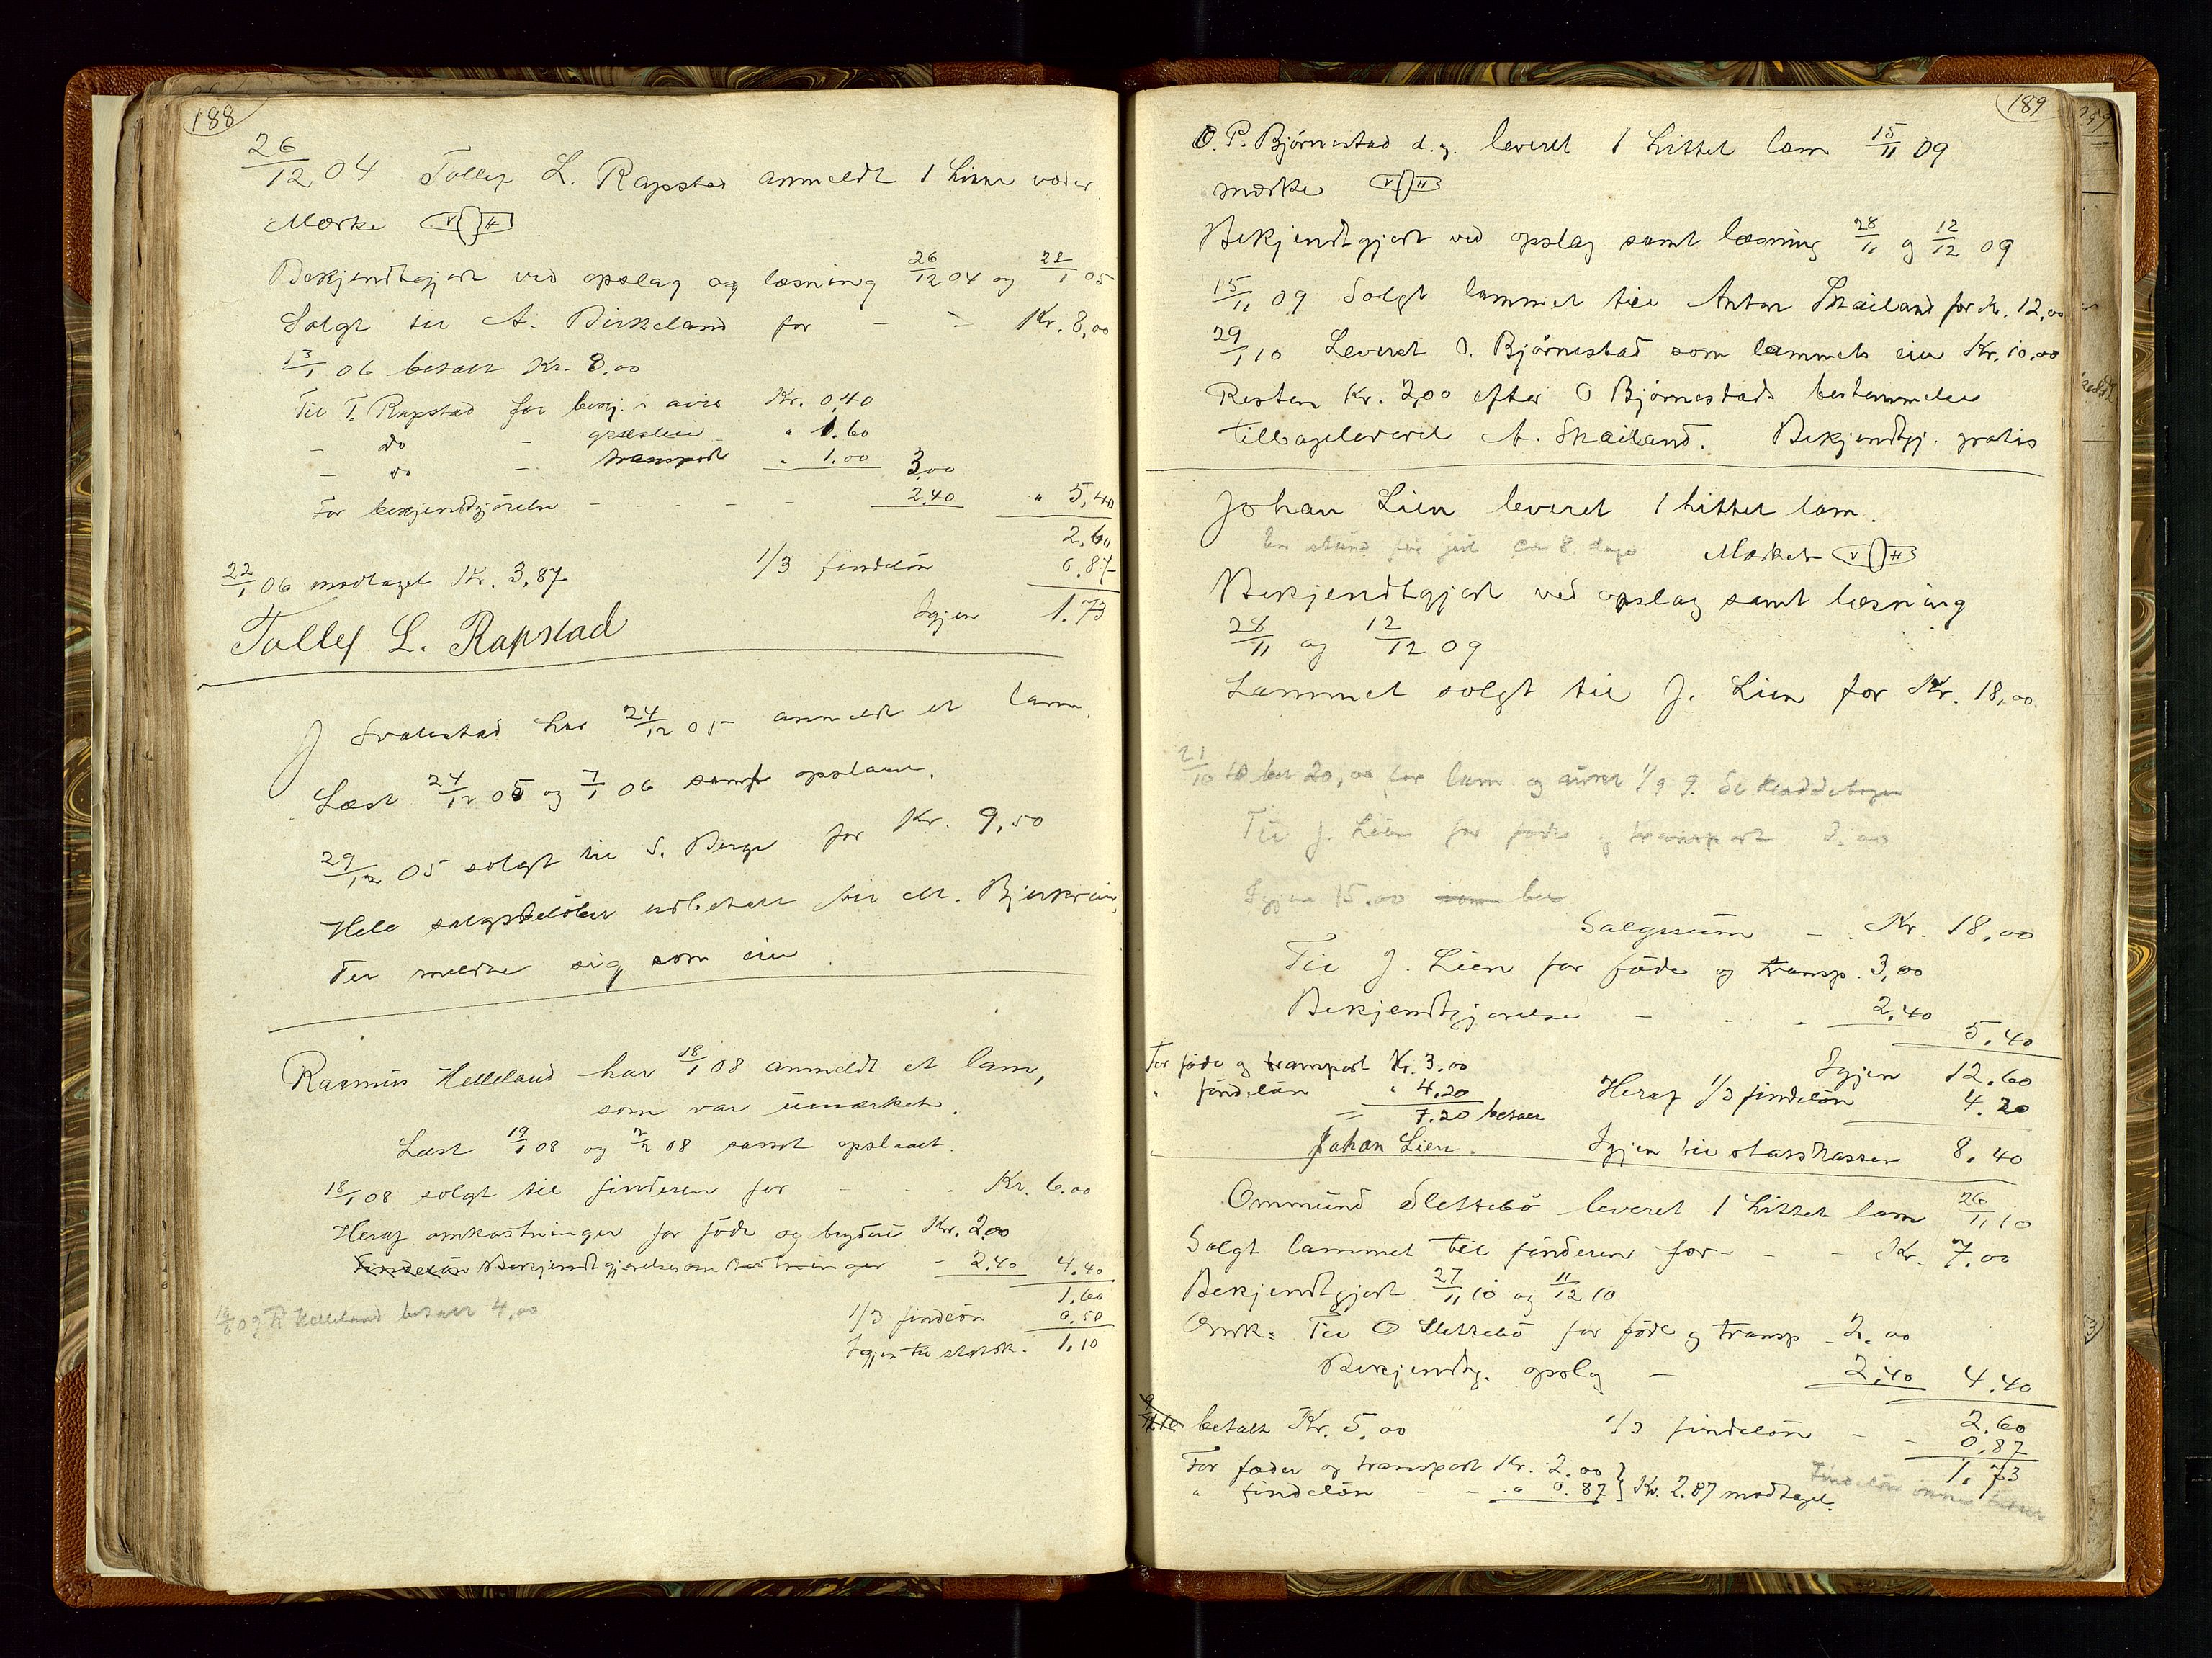 188
26/12 04 Tollef L. Rapstad anmeldt 1 hittet væder
Mærke V H
Bekjendtgjort ved opslag og læsning 26/12 04 og 22/1 05
Solgt til A. Birkeland for - - Kr. 8,00
13/1 06 betalt Kr. 8.00
Til T. Rapstad for bekj. i avis Kr. 0,40
- do - græsleie " 1.60
- do - transport " 1.00 3,00
For bekjendtgjörelse - - - - 2,40 " 5,40
2,60
1/3 findelön 0.87
22/1 06 modtaget Kr. 3,87
Igjen 1.73
Tollef L. Rapstad
J Svalestad har 24/12 05 anmeldt et lam.
Læst 24/12 05 og 7/1 06 samt opslaaet.
29/12 05 solgt til S. Berge for Kr. 9,50
Hele salgsbelöbet udbetalt til M. Bjerkreim,
der meldte sig som eier.
Rasmus Helleland har 18/1 08 anmeldt et lam,
som var umærket.
Læst 19/1 08 og 2/2 08 samt opslaaet.
18/1 08 solgt til finderen for - - - Kr. 6.00
Heraf omkostninger for föde og bryderi Kr. 2.00
Findelön Bekjendtgjørelsesomkostninger - 2.40 4.40
1,60
1/3 findelön 0,50
Igjen til statsk. 1,10
09 R Helleland betalt 4,00
189
O. P. Bjørnestad d.y. leveret 1 hittet lam 15/11 09
mærke V H
Bekjendtgjort ved opslag samt læsning 28/11 og 12/12 09
15/11 09 Solgt lammet til Anton Skailand for Kr. 12,00
29/1 10 Leveret O. Bjørnestad som lammets eier Kr. 10,00
Resten Kr. 2,00 efter O Bjørnestads bestemmelse
tilbageleveret A. Skailand. Bekjendtgj. gratis
Johan Lien leveret 1 hittet lam.
En stund før jul ca 8. dage Mærket V H
Bekjendtgjort ved opslag samt læsning
28/11 og 12/12 09
Lammet solgt til J. Lien for Kr. 18,00
21/10 10 bet 20,00 for lam og
Til J. Lien for føde og transport 3.00
Igjen 15.00 som bet
Salgssum - . Kr. 18,00
Til J. Lien for føde og transp. 3,00
Bekjendtgjørelse - - - 2,40
5,40
For føde og transport Kr. 3.00
Igjen 12,60
" findelön " 4.20
Heraf 1/3 findelön 4.20
= 7.20 betalt
Johan Lien.
Igjen til statskassen 8,40
Ommund Slettebö leveret 1 hittet lam 26/11 10
Solgt lammet til finderen for - - - Kr. 7,00
Bekjendtgjort 27/11 10 og 11/12 10
Omk: Til O Slettebö for føde og transp - 2.00
Bekjendtg. opslag - 2,40 4,40
betalt Kr. 5.00 1/3 findelön - 2,60
- 0,87
1,73
For føder og transport Kr. 2.00
" findelön - - " 0.87 } Kr. 2.87 modtaget.
Findelön